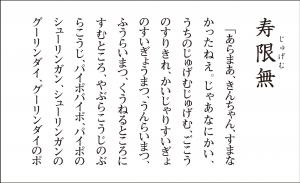 寿限無
じゅげむ
「あらまあ、きんちゃん、すまな
かったねえ。じゃあなにかい、
うちのじゅげむじゅげむ、ごこう
のすりきれ、かいじゃりすいぎょ
のすいぎょうまつ、うんらいまつ、
ふうらいまつ、くうねるところに
すむところ、やぶらこうじのぶ
らこうじ、パイポパイポ、パイポの
シューリンガン、シューリンガンの
グーリンダイ、グーリンダイのポ